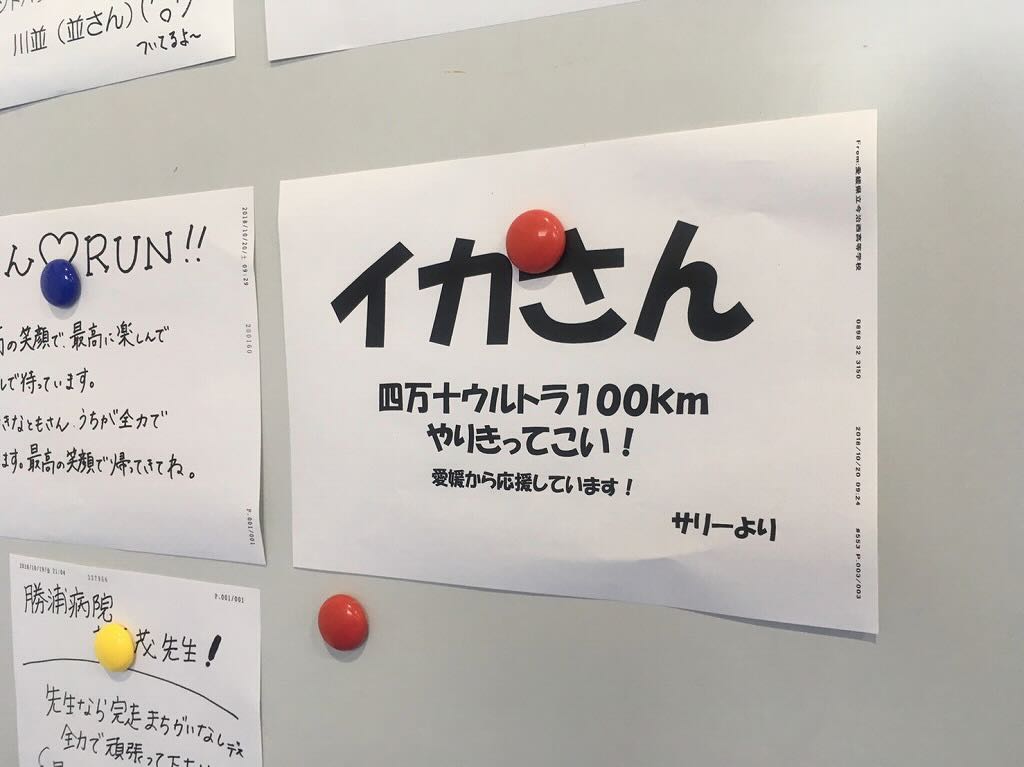 川並(並さん)
ついてるよ〜
ん♡RUN!!
の笑顔で、最高に楽しんで
で待っています。
きなともさん、うちが全力で
ます。最高の笑顔で帰ってきてね。
2018/10/20/土 09:29
200160
P.001/001
イカさん
四万十ウルトラ100km
やりきってこい!
愛媛から応援しています!
サリーより
From:愛媛県立今治西高等学校
0898 32 3150
2018/10/20 09:24
#553 P.003/003
2018/10/19/金 21:04
P.001/001
勝浦病院
茂先生!
先生なら完走まちがいなしデス
全力で頑張って下さい